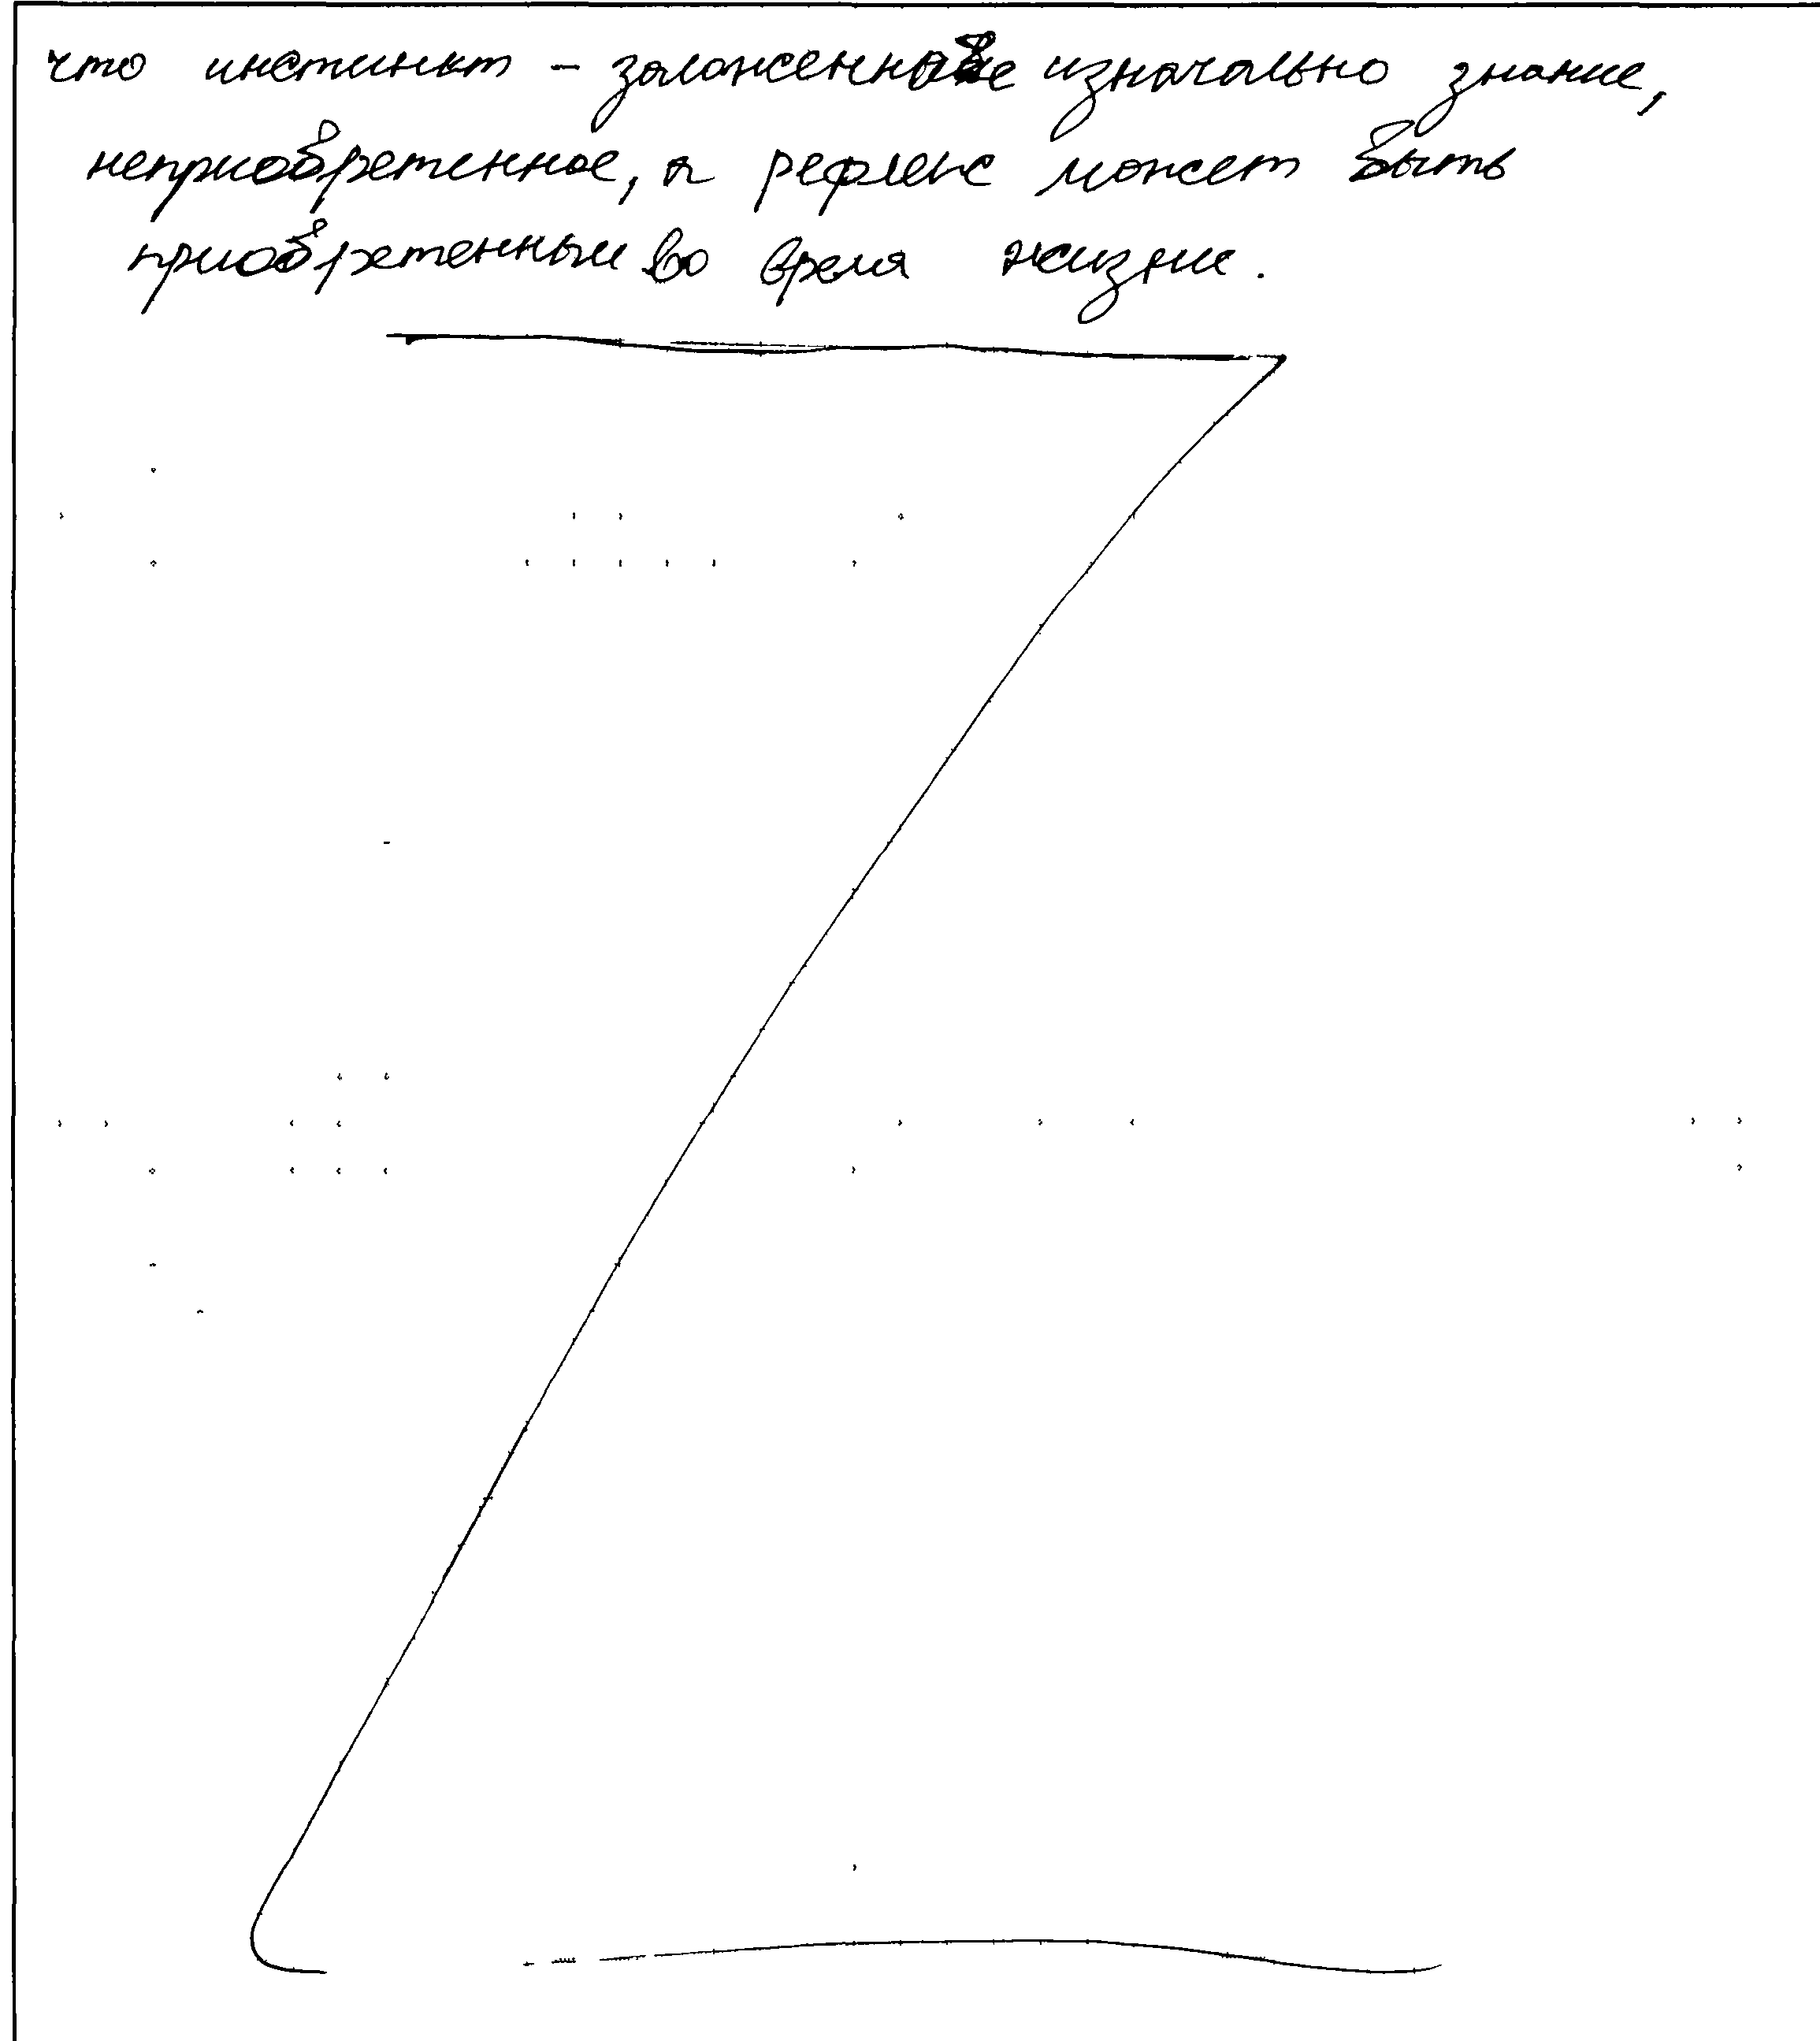 что инстинкт - заложенное изначально знание,
неприобретенное, а рефлекс может быть
приобретенным во время жизни.